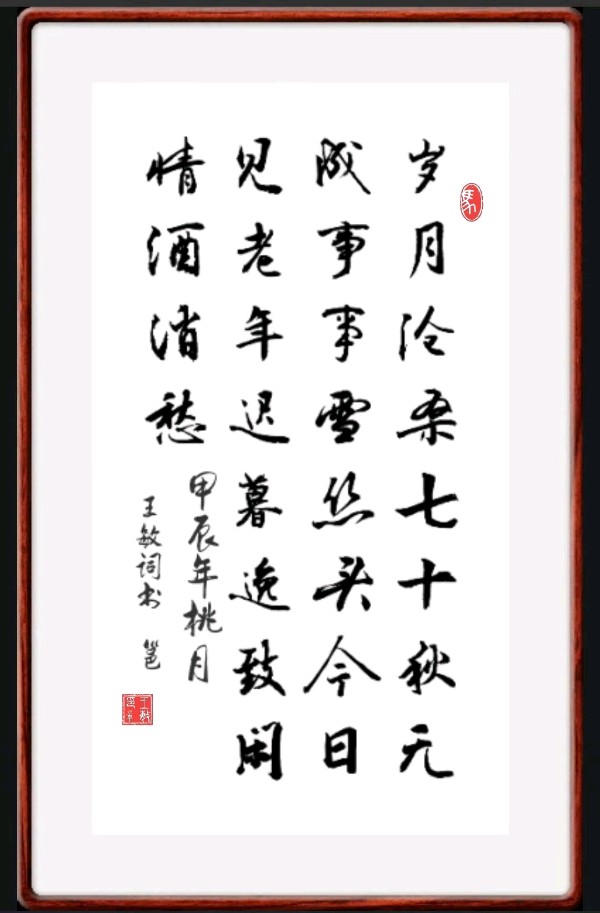 馬
岁月沧桑七十秋无
成事事雪丝头今日
见老年迟暮逸致闲
情酒消愁
甲辰年桃月
王敏词书 邕